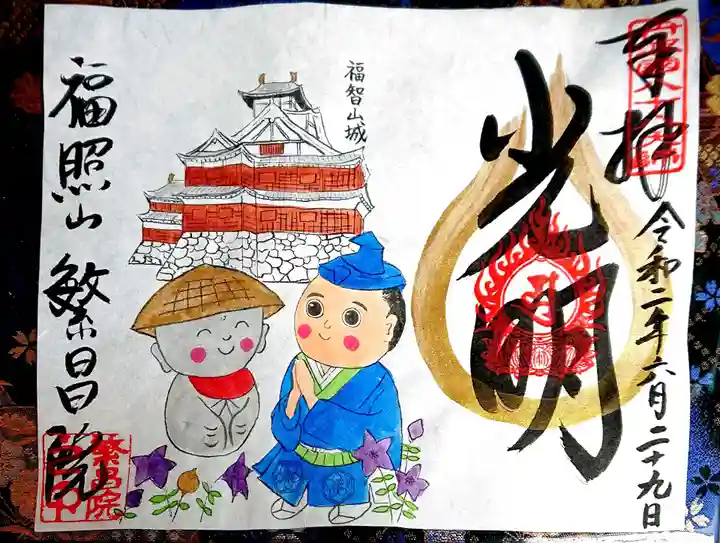 奉拝
令和二年六月二十九日
光明
福智山城
福照山 繁昌院
繁昌院